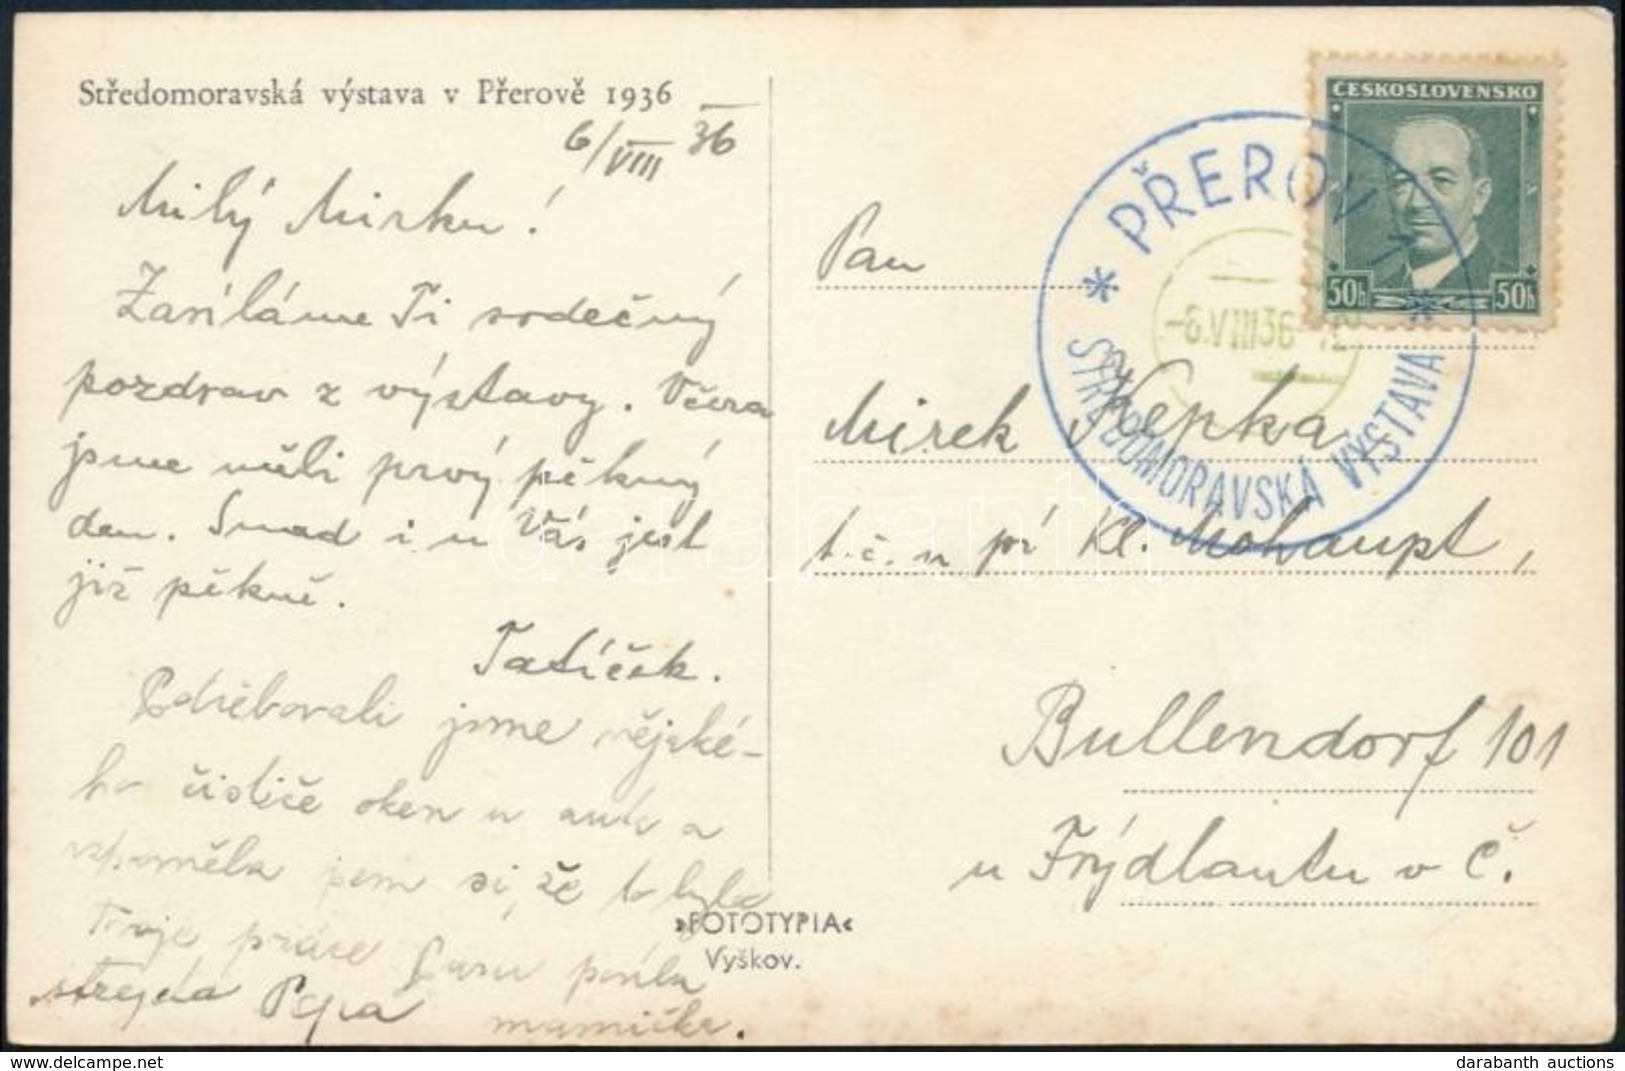 Středomoravská výstava v Přerově 1936
6/VIII 36
Milý Mirku!
Zasíláme Ti srdečný
pozdrav z výstavy. Včera
jsme měli prvý pěkný
den. Snad i u Vás jest
již pěkně.
Tatíček.
Potřebovali jsme nějaké-
ho čističe oken u auta a
vzpoměla jsem si, že to byla
Tvoje práce
mamička.
strejda Pepa
»FOTOTYPIA«
Vyškov.
ČESKOSLOVENSKO
50h 50h
PŘEROV 1
STŘEDOMORAVSKÁ VÝSTAVA
-6.VIII36
Pan
Mirek Kepka
t.č. u pí Kl. Mohaupt,
Bullendorf 101
u Frýdlantu v Č.
darabanth
darabanth auctions